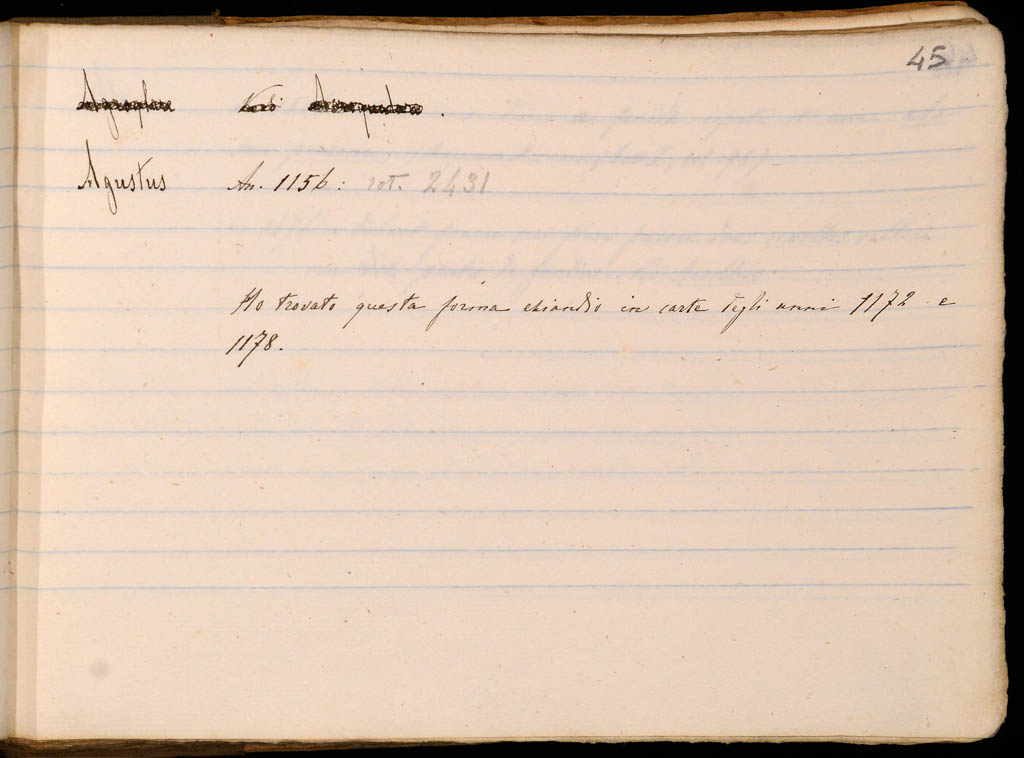 45
Vedi
Agustus An. 1156: rot. 2431
Ho trovato questa forma eziandio in carte degli anni 1172 e
1178.